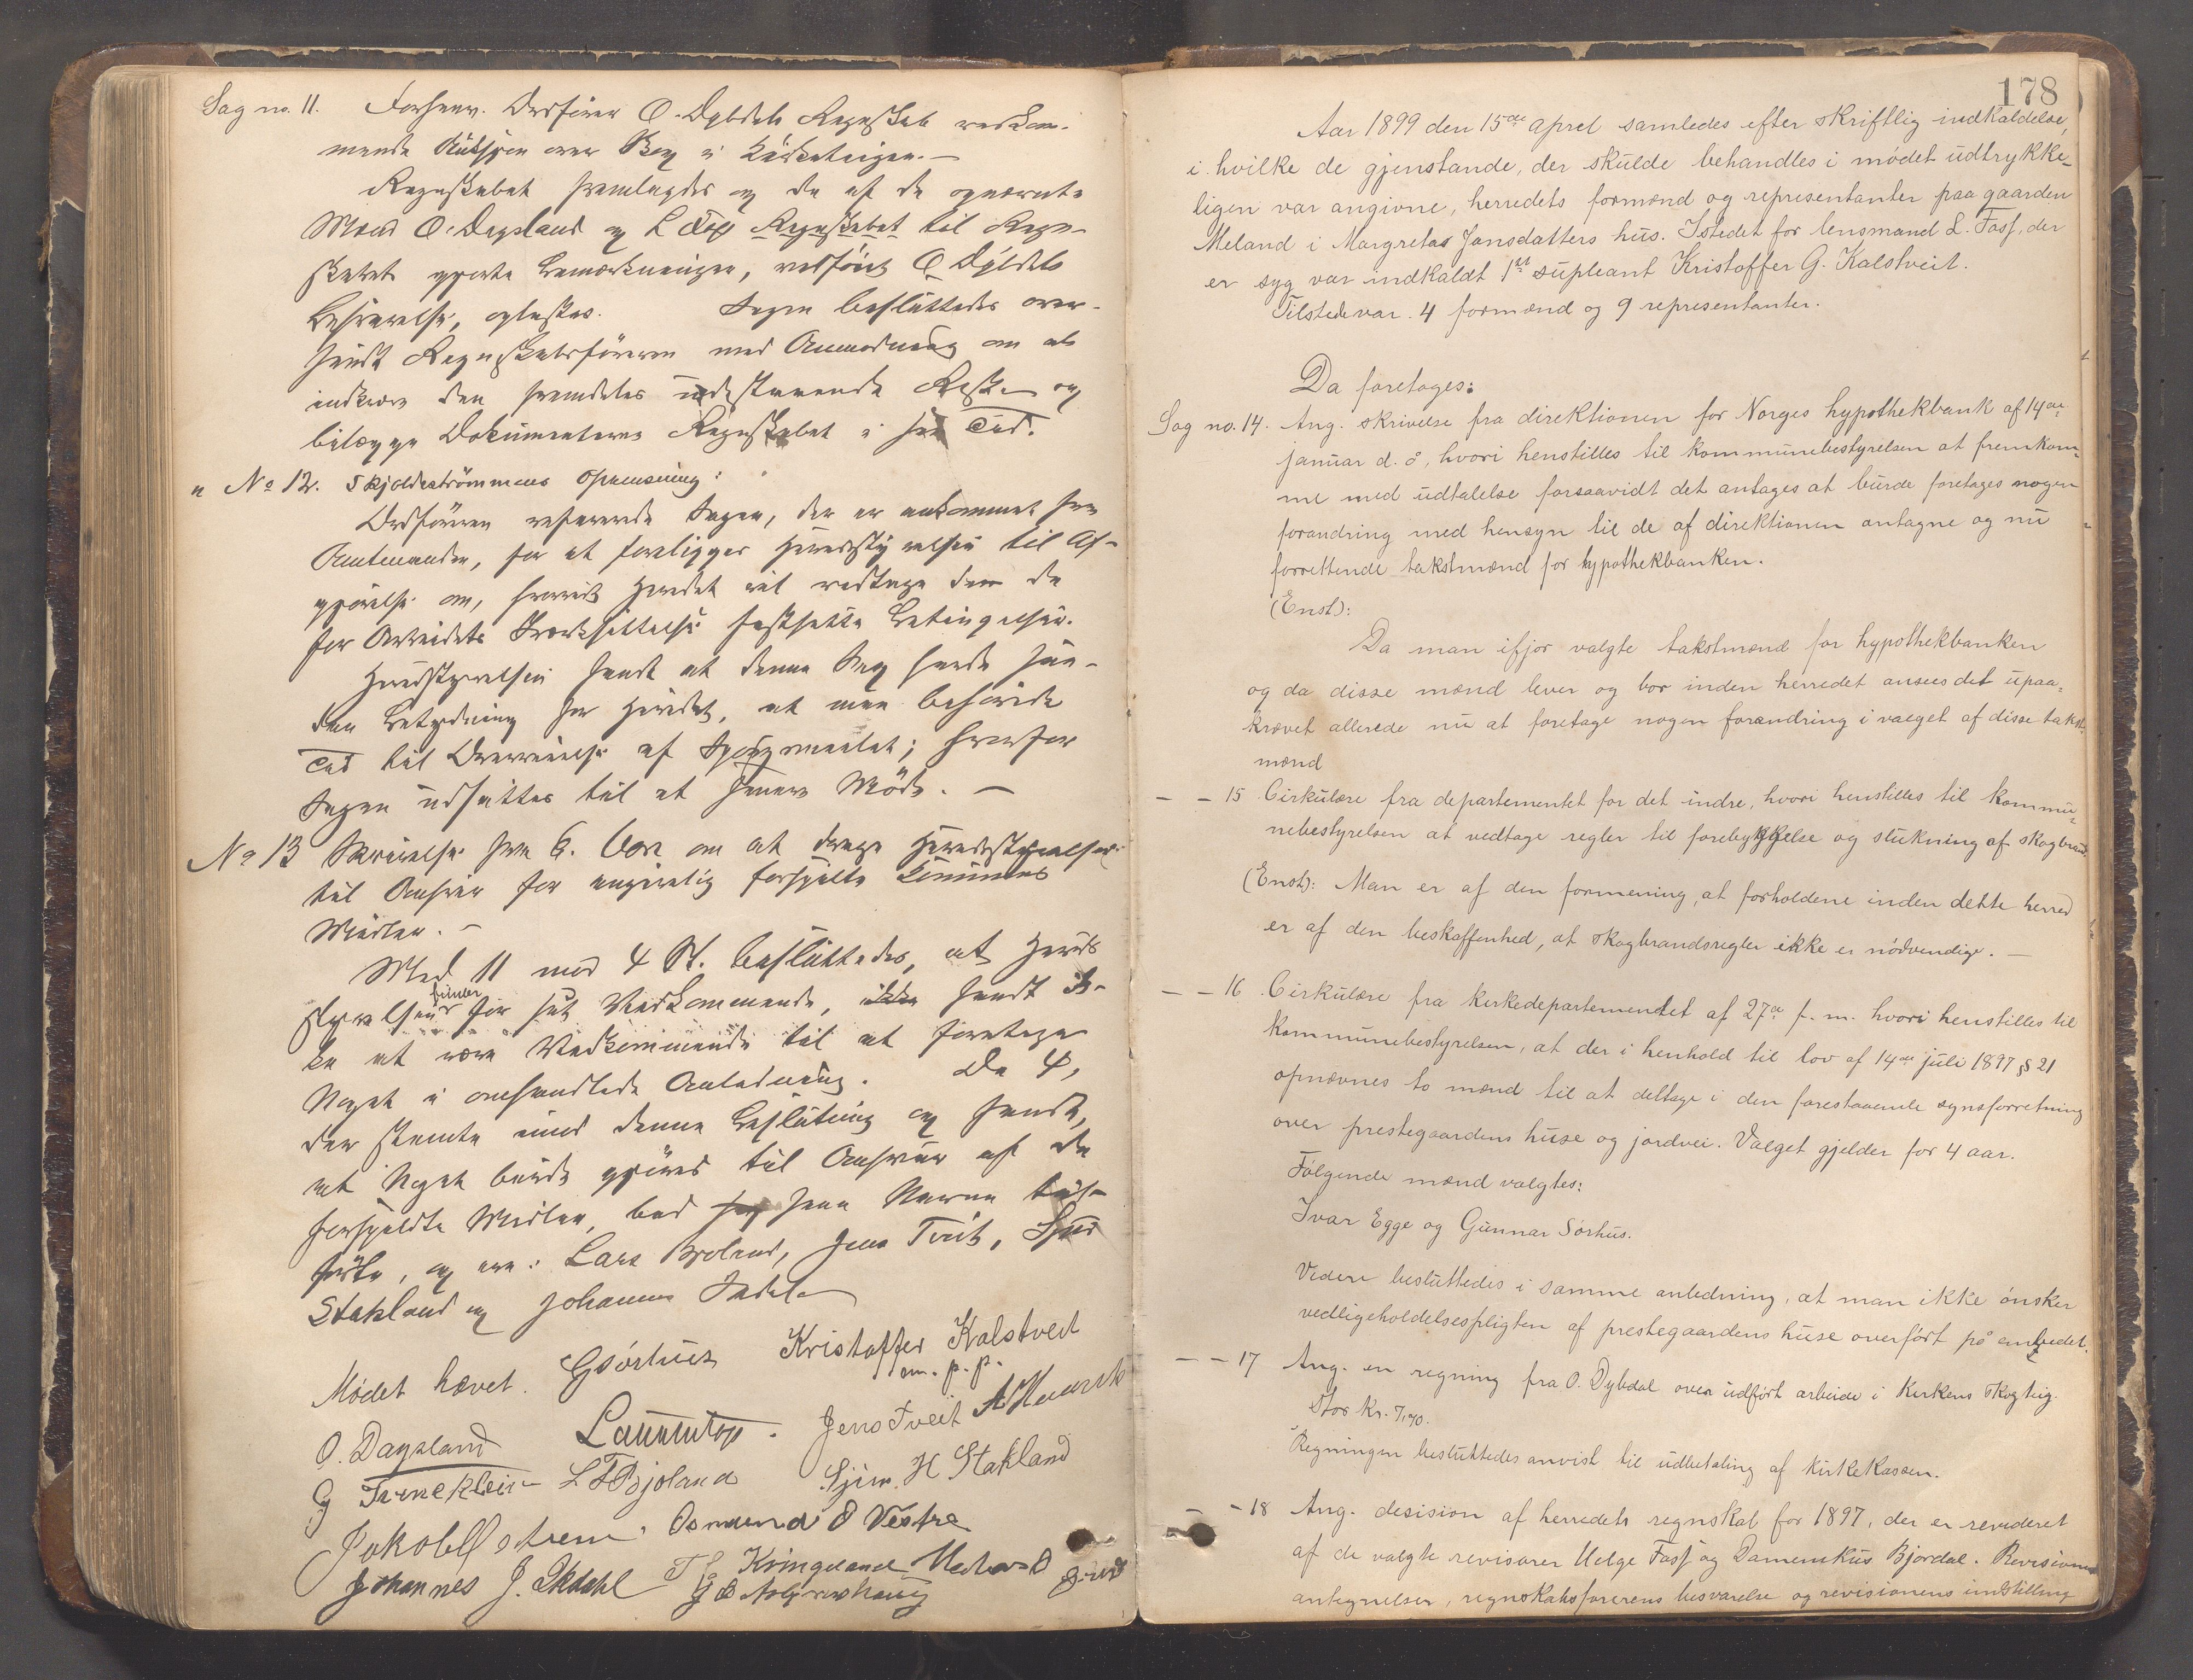 Sag no. 11. Forhenv. Ordfører O. Dybdals Regnskab vedkom-
mende Auksjon over Skog i Kirketeigen. —
Regnskabet fremlagdes og de af de opnævnte
Mænd O. Dagsland og L Fosse Regnskabet til Regn-
skabet gjorte Bemærkninger, vedføiet O. Dybdals
Besvarelse, oplæstes. Sagen besluttedes over-
sendt Regnskabsføreren med Anmodning om at
indkræve den fremdeles udestaaende Rest og
bilægge Dokumenterne Regnskabet i sin Tid.
" No 12. Skjoldestrømmens Opmudring:
Ordføreren refererede Sagen, der er ankommet fra
Amtmanden, for at forelægges Herredsstyrelsen til Af-
gjørelse om, hvorvidt Herredet vil vedtage de
for Arbeidets Iværksættelse fastsatte Betingelser.
Herredsstyrelsen fandt at denne Sag havde saa-
dan Betydning for Herredet, at man behøvede
Tid til Overveielse af Spørgsmaalet; hvorfor
Sagen udsættes til et senere Møde. —
No 13 Skrivelse fra G. Vare om at drage Herredsstyrelsen
til Ansvar for angivelig forspildte Kommunes
Midler. —
Med 11 mod 4 St. besluttedes, at Herreds
finder
styrelsen for sit Vedkommende, ikke fandt ik-
ke at være Vedkommende til at foretage
Noget i omhandlede Anledning. De 4,
der stemte imod denne Beslutning og fandt,
at Noget burde gjøres til Ansvar af de
forspildte Midler, bad sine Navne til-
ført, og er: Lars Bjoland, Jens Tveit, Sjur
Stakland og Johannes Ekdal
Mødet hævet. GSørhus Kristoffer Kalstveit
m. p. p.
O. Dagsland Jens Tveit
L T Bjoland Sjur. H Stakland
Osmund O Vestre
Johannes J. Ekdahl T S Kvingeland
178
Aar 1899 den 15de aprel samledes efter skriftlig indkaldelse,
i hvilke de gjenstande, der skulde behandles i mødet udtrykke-
ligen var angivne, herredets formænd og representanter paa gaarden
Meland i Margretas Jansdatters hus. Istedet for lensmand L. Fosf, der
er syg var indkaldt 1st supleant Kristoffer G. Kalstveit.
Tilstede var 4 formænd og 9 representanter.
Da foretoges:
Sag no. 14. Ang. skrivelse fra direktionen for Norges hypothekbank af 14de
januar d. å, hvori henstilles til kommunebestyrelsen at fremkom-
me med udtalelse forsaavidt det antages at burde foretages nogen
forandring med hensyn til de af direktionen antagne og nu
forrettende takstmænd for hypothekbanken.
(Enst):
Da man ifjor valgte takstmænd for hypothekbanken
og da disse mænd lever og bor inden herredet ansees det upaa-
krævet allerede nu at foretage nogen forandring i valget af disse takst-
mænd
— — 15 Cirkulære fra departementet for det indre, hvori henstilles til kommu-
nebestyrelsen at vedtage regler til forebyggelse og slukning af skogbrand.
(Enst): Man er af den formening, at forholdene inden dette herred
er af den beskaffenhed, at skogbrandsregler ikke er nödvendige. —
— — 16 Cirkulære fra kirkedepartementet af 27de f. m. hvori henstilles til
kommunebestyrelsen, at der i henhold til lov af 14de juli 1897 § 21
opnævnes to mænd til at deltage i den forestaaende synsforretning
over prestegaardens huse og jordvei. Valget gjelder for 4 aar.
Følgende mænd valgtes:
Ivar Egge og Gunnar Sørhus.
Videre besluttedes i samme anledning, at man ikke ønsker
vedligeholdelsespligten af prestegaardens huse overført på embedet.
— — 17 Ang. en regning fra O. Dybdal over udført arbeide i kirkens skogteig.
Stor kr. 7,70.
Regningen besluttedes anvist til udbetaling af kirkekassen.
— — 18 Ang. desision af herredets regnskab for 1897, der er revideret
af de valgte revisorer Helge Fosf og Dammemkus Bjordal. Revisionens
antegnelser, regnskabsførerens besvarelse og revisionens indstilling